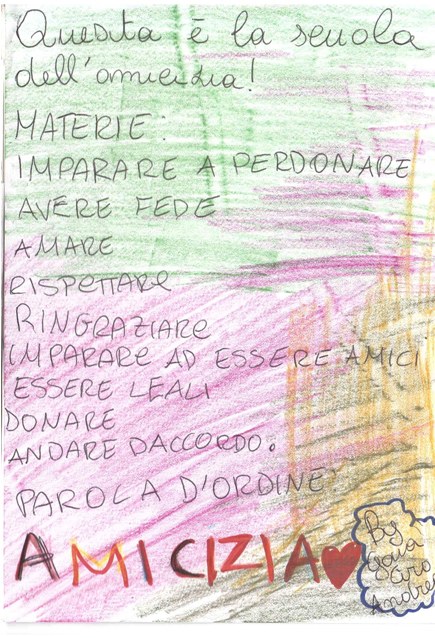 Questa è la scuola
dell'amicizia!
MATERIE:
IMPARARE A PERDONARE
AVERE FEDE
AMARE
RISPETTARE
RINGRAZIARE
IMPARARE AD ESSERE AMICI
ESSERE LEALI
DONARE
ANDARE DACCORDO.
PAROLA D'ORDINE
AMICIZIA
By
Andrea